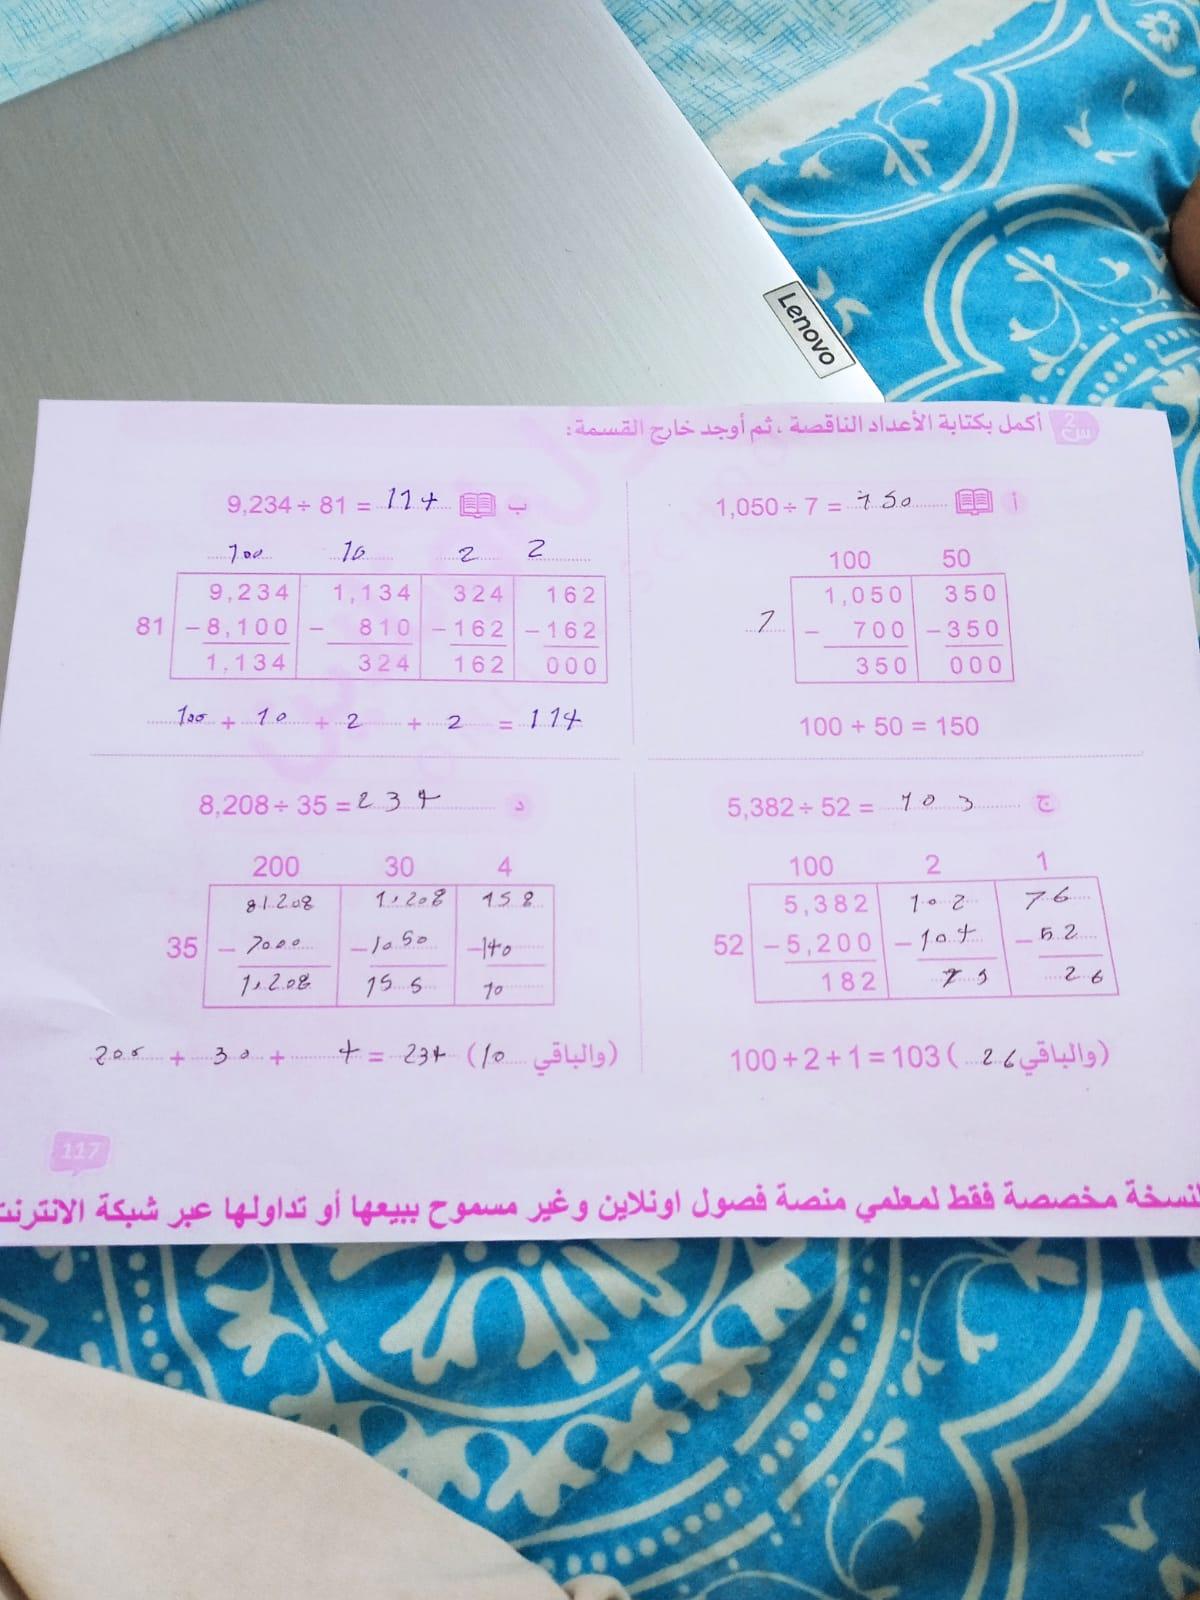 Lenovo
س2 أكمل بكتابة الأعداد الناقصة ، ثم أوجد خارج القسمة:
أ 1,050 ÷ 7 = 150
100 50
7
1,050 350
- 700 - 350
350 000
100 + 50 = 150
ب 9,234 ÷ 81 = 114
100 10 2 2
81
9,234 1,134 324 162
- 8,100 - 810 - 162 - 162
1,134 324 162 000
100 + 10 + 2 + 2 = 114
ج 5,382 ÷ 52 = 103
100 2 1
5,382 102 76
52 - 5,200 - 104 - 52
182 26
100 + 2 + 1 = 103 (والباقي 26)
د 8,208 ÷ 35 = 234
200 30 4
8,208 1,208 158
35 - 7000 - 1050 - 140
1,208 155 10
200 + 30 + 4 = 234 (والباقي 10)
117
النسخة مخصصة فقط لمعلمي منصة فصول اونلاين وغير مسموح ببيعها أو تداولها عبر شبكة الانترنت